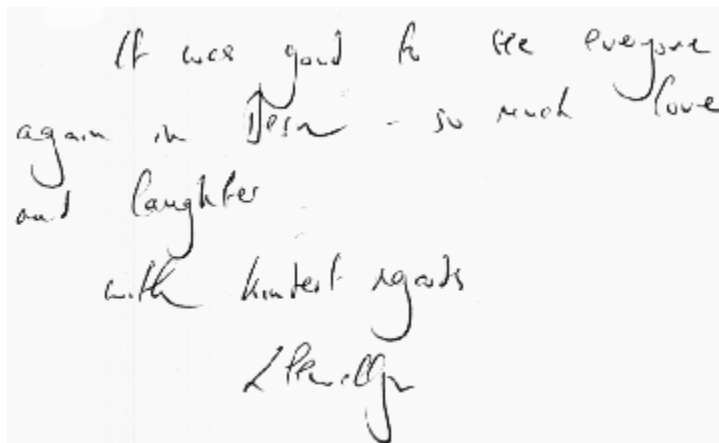 It was good to see everyone
again in - so much love
and laughter
with kindest regards